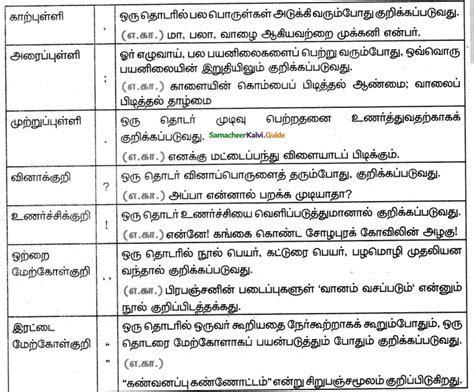 காற்புள்ளி , ஒரு தொடரில் பல பொருள்கள் அடுக்கி வரும்போது குறிக்கப்படுவது.
(எ.கா.) மா, பலா, வாழை ஆகியவற்றை முக்கனி என்பர்.
அரைப்புள்ளி ; ஓர் எழுவாய், பல பயனிலைகளைப் பெற்று வரும்போது, ஒவ்வொரு
பயனிலையின் இறுதியிலும் குறிக்கப்படுவது.
(எ.கா.) காளையின் கொம்பைப் பிடித்தல் ஆண்மை; வாலைப்
பிடித்தல் தாழ்மை
முற்றுப்புள்ளி . ஒரு தொடர் முடிவு பெற்றதனை உணர்த்துவதற்காகக்
குறிக்கப்படுவது. SamacheerKalvi.Guide
(எ.கா.) எனக்கு மட்டைப்பந்து விளையாடப் பிடிக்கும்.
வினாக்குறி ? ஒரு தொடர் வினாப்பொருளைத் தரும்போது, குறிக்கப்படுவது.
(எ.கா.) அப்பா என்னால் பறக்க முடியாதா?
உணர்ச்சிக்குறி ! ஒரு தொடர் உணர்ச்சியை வெளிப்படுத்துமானால் குறிக்கப்படுவது.
(எ.கா.) என்னே! கங்கை கொண்ட சோழபுரக் கோவிலின் அழகு!
ஒற்றை
மேற்கோள்குறி ' ' ஒரு தொடரில் நூல் பெயர், கட்டுரை பெயர், பழமொழி முதலியன
வந்தால் குறிக்கப்படுவது.
(எ.கா.) பிரபஞ்சனின் படைப்புகளுள் 'வானம் வசப்படும்' என்னும்
நூல் குறிப்பிடத்தக்கது.
இரட்டை
மேற்கோள்குறி “ ” ஒரு தொடரில் ஒருவர் கூறியதை நேர்கூற்றாகக் கூறும்போதும், ஒரு
தொடரை மேற்கோளாகப் பயன்படுத்தும் போதும் குறிக்கப்படுவது.
(எ.கா.)
“கண்வனப்பு கண்ணோட்டம்” என்று சிறுபஞ்சமூலம் குறிப்பிடுகிறது.